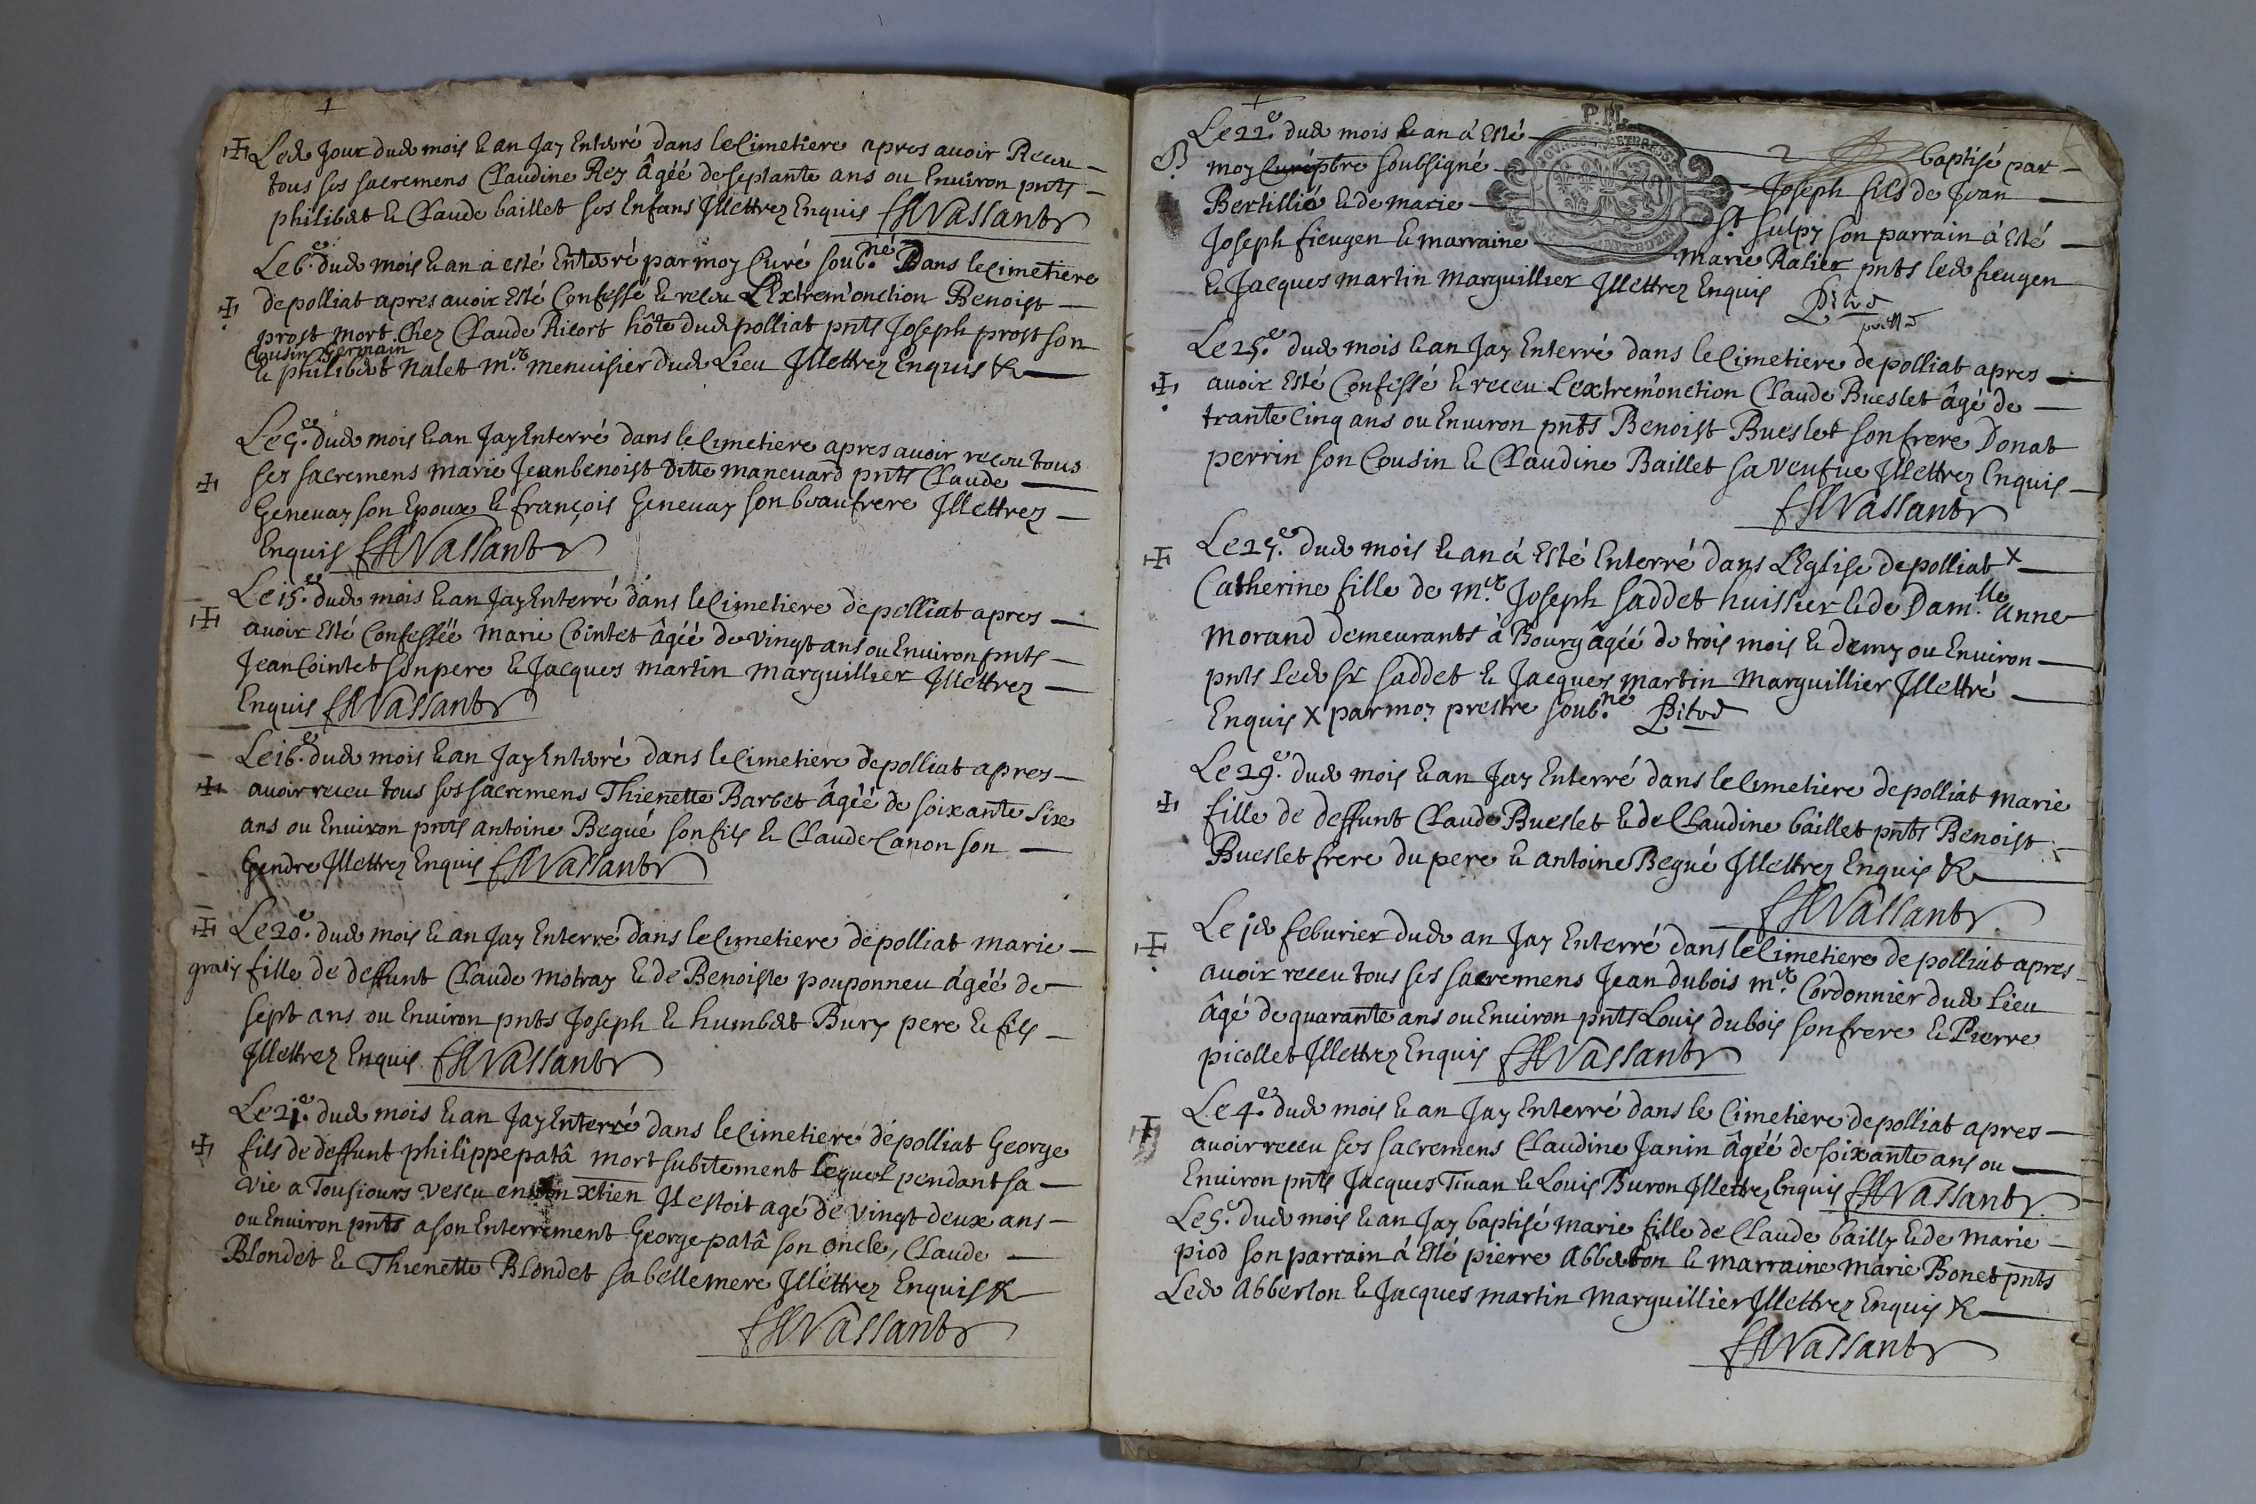 Led. Jour dud. mois & an Jay Enterré dans le Cimetiere apres avoir Receu
tous ses sacremens Claudine Rey âgéé de septante ans ou Environ pnts
philibert & Claude baillet ses Enfans Illettrez Enquis Vassant
Le 6.e dud. mois & an a esté Enterré par moy Curé soub.né Dans le Cimetiere
de polliat apres avoir Esté Confessé & receu L'Extrem'onction Benoist
prost mort Chez Claude Ricort hôte dud. polliat pnts Joseph prost son
Cousin Germain
& philibert Nalet m.e menuisier dud. Lieu Illettrez Enquis &
Le 9.e dud. mois & an Jay Enterré dans le Cimetiere apres avoir receu tous
ses sacremens marie Jeanbenoist Ditte manevard pnts Claude
Genevay son Epoux & françois Genevay son beaufrere Illettrez
Enquis Vassant
Le 15.e dud. mois & an Jay Enterré dans le Cimetiere de polliat apres
avoir Esté Confessée marie Cointet âgéé de vingt ans ou Environ pnts
Jean Cointet son pere & Jacques martin marguillier Illettrez
Enquis Vassant
Le 16.e dud. mois & an Jay Enterré dans le Cimetiere de polliat apres
avoir receu tous ses sacremens Thienette Barbet âgéé de soixante six
ans ou Environ pnts antoine Begué son fils & Claude Canon son
Gendre Illettrez Enquis Vassant
Le 20.e dud. mois & an Jay Enterré dans le Cimetiere de polliat marie
gratis fille de deffunt Claude motray & de Benoiste pouponneu âgéé de
sept ans ou Environ pnts Joseph & humbert Bury pere & fils
Illettrez Enquis Vassant
Le 21.e dud. mois & an Jay Enterré dans le Cimetiere de polliat George
fils de deffunt philippe patâ mort subitement Lequel pendant sa
vie a Tousiours vescu en bon xtien Il estoit agé de vingt deux ans
ou Environ pnts a son Enterrement George patâ son oncle, Claude
Blondet & Thienette Blondet sa bellemere Illettrez Enquis &
Vassant
Le 22.e dud. mois & an à Esté 2 baptisé par
moy pbre soubsigné Joseph fils de Jean
Bertillié & de marie St. sulpy son parrain à Esté
Joseph fieugen & marraine marie Ralier pnts led. fieugen
& Jacques martin marguillier Illettrez Enquis Pitod
Le 25.e dud. mois & an Jay Enterré dans le Cimetiere de polliat apres
avoir Esté Confessé & receu L'extrem'onction Claude Bueslet âgé de
trante Cinq ans ou Environ pnts Benoist Bueslet son frere Donat
perrin son Cousin & Claudine Baillet sa veufue Illettrez Enquis
Vassant
Le 25.e dud. mois & an à Esté Enterré dans L'Eglise de polliat X
Catherine fille de m.e Joseph saddet huissier & de Dam.lle anne
morand demeurants à Bourg âgéé de trois mois & demy ou Environ
pnts Led. sr saddet & Jacques martin marguillier Illettré
Enquis X par moy prestre soub.né Pitod
Le 29.e dud. mois & an Jay Enterré dans le Cimetiere de polliat marie
fille de deffunt Claude Bueslet & de Claudine baillet pnts Benoist
Bueslet frere du pere & antoine Begué Illettrez Enquis &
Vassant
Le 1er feburier dud. an Jay Enterré dans le Cimetiere de polliat apres
avoir receu tous ses sacremens Jean dubois m.e Cordonnier dud. Lieu
âgé de quarante ans ou Environ pnts Louis dubois son frere & Pierre
picollet Illettrez Enquis Vassant
Le 4.e dud. mois & an Jay Enterré dans le Cimetiere de polliat apres
avoir receu ses sacremens Claudine Janin âgéé de soixante ans ou
Environ pnts Jacques Tivan & Louis Buron Illettrez Enquis Vassant
Le 5.e dud. mois & an Jay baptisé marie fille de Claude bailly & de marie
piod son parrain à Esté pierre abberton & marraine marie Bonet pnts
Led. abberton & Jacques martin marguillier Illettrez Enquis &
Vassant